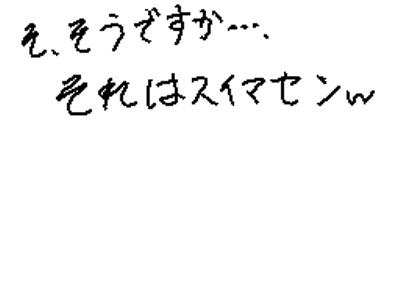 そ、そうですか…、
それはスイマセンw